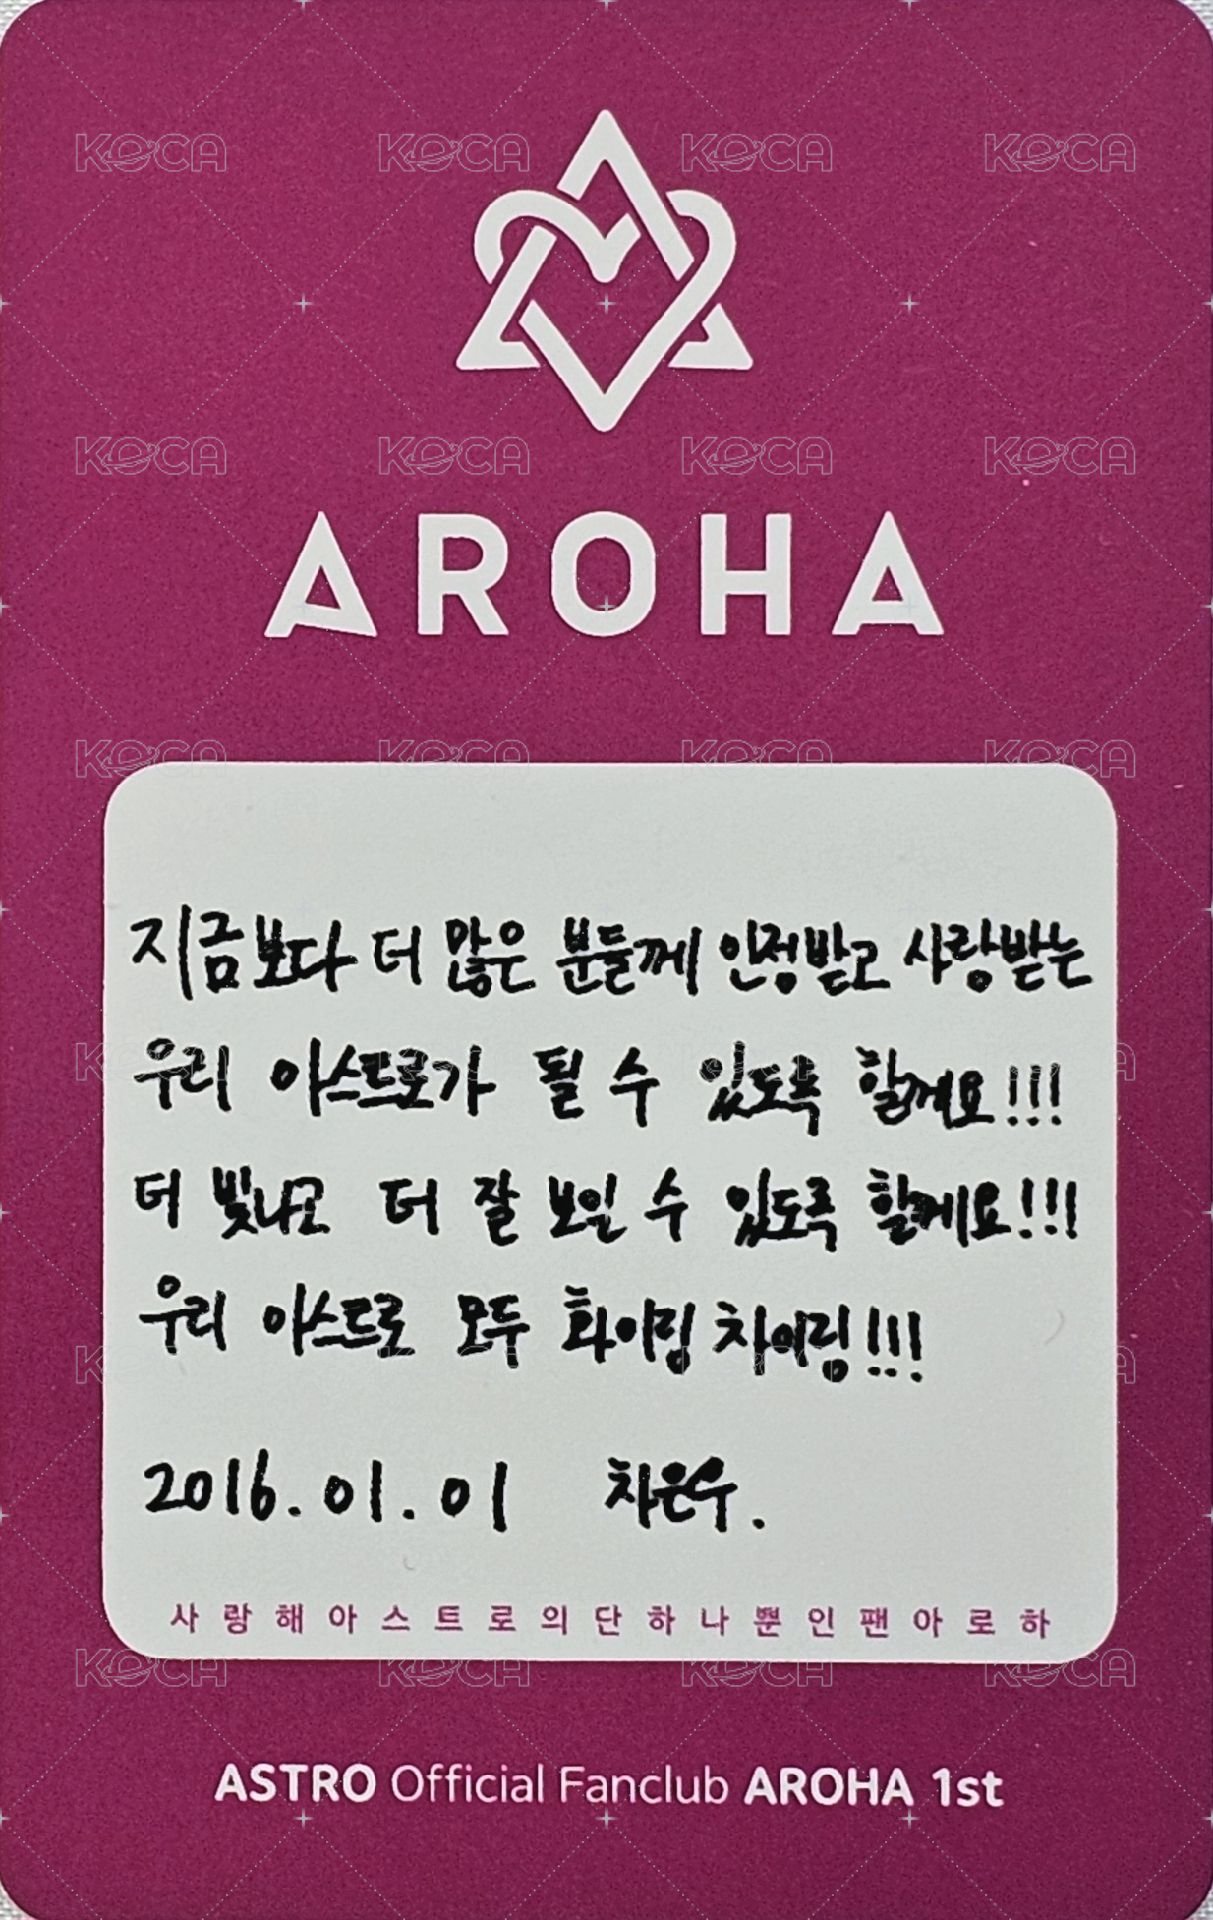 AROHA
지금보다 더 많은 분들께 인정받고 사랑받는
우리 아스트로가 될 수 있도록 할께요!!!
더 빛나고 더 잘 보일 수 있도록 할께요!!!
우리 아스트로 모두 화이팅 차이링!!!
2016.01.01 차은우.
사랑해아스트로의단하나뿐인팬아로하
ASTRO Official Fanclub AROHA 1st
KOCA KOCA KOCA KOCA